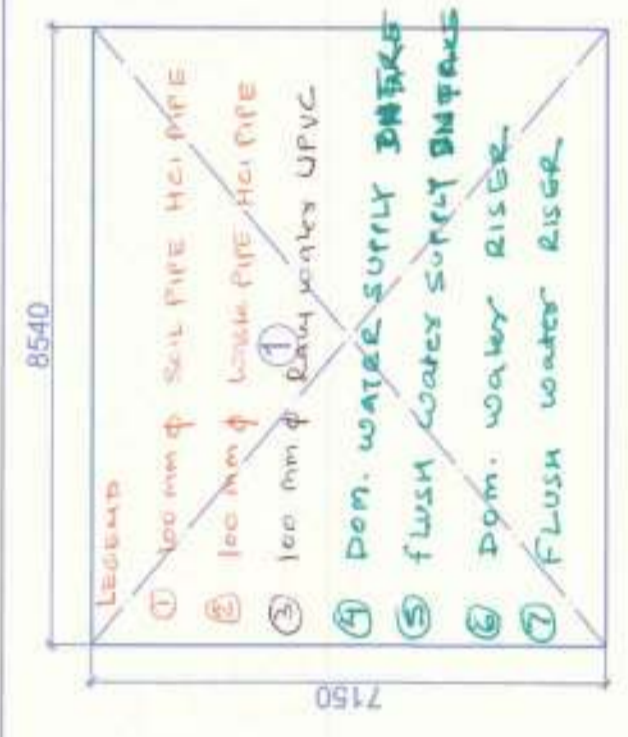 8540
7150
LEGEND
① 100 mm φ SOIL PIPE HCI PIPE
② 100 mm φ WASTE PIPE HCI PIPE
③ 100 mm φ Rain water UPVC
④ DOM. WATER SUPPLY INTAKE
⑤ FLUSH water SUPPLY INTAKE
⑥ DOM. water RISER
⑦ FLUSH water RISER
1